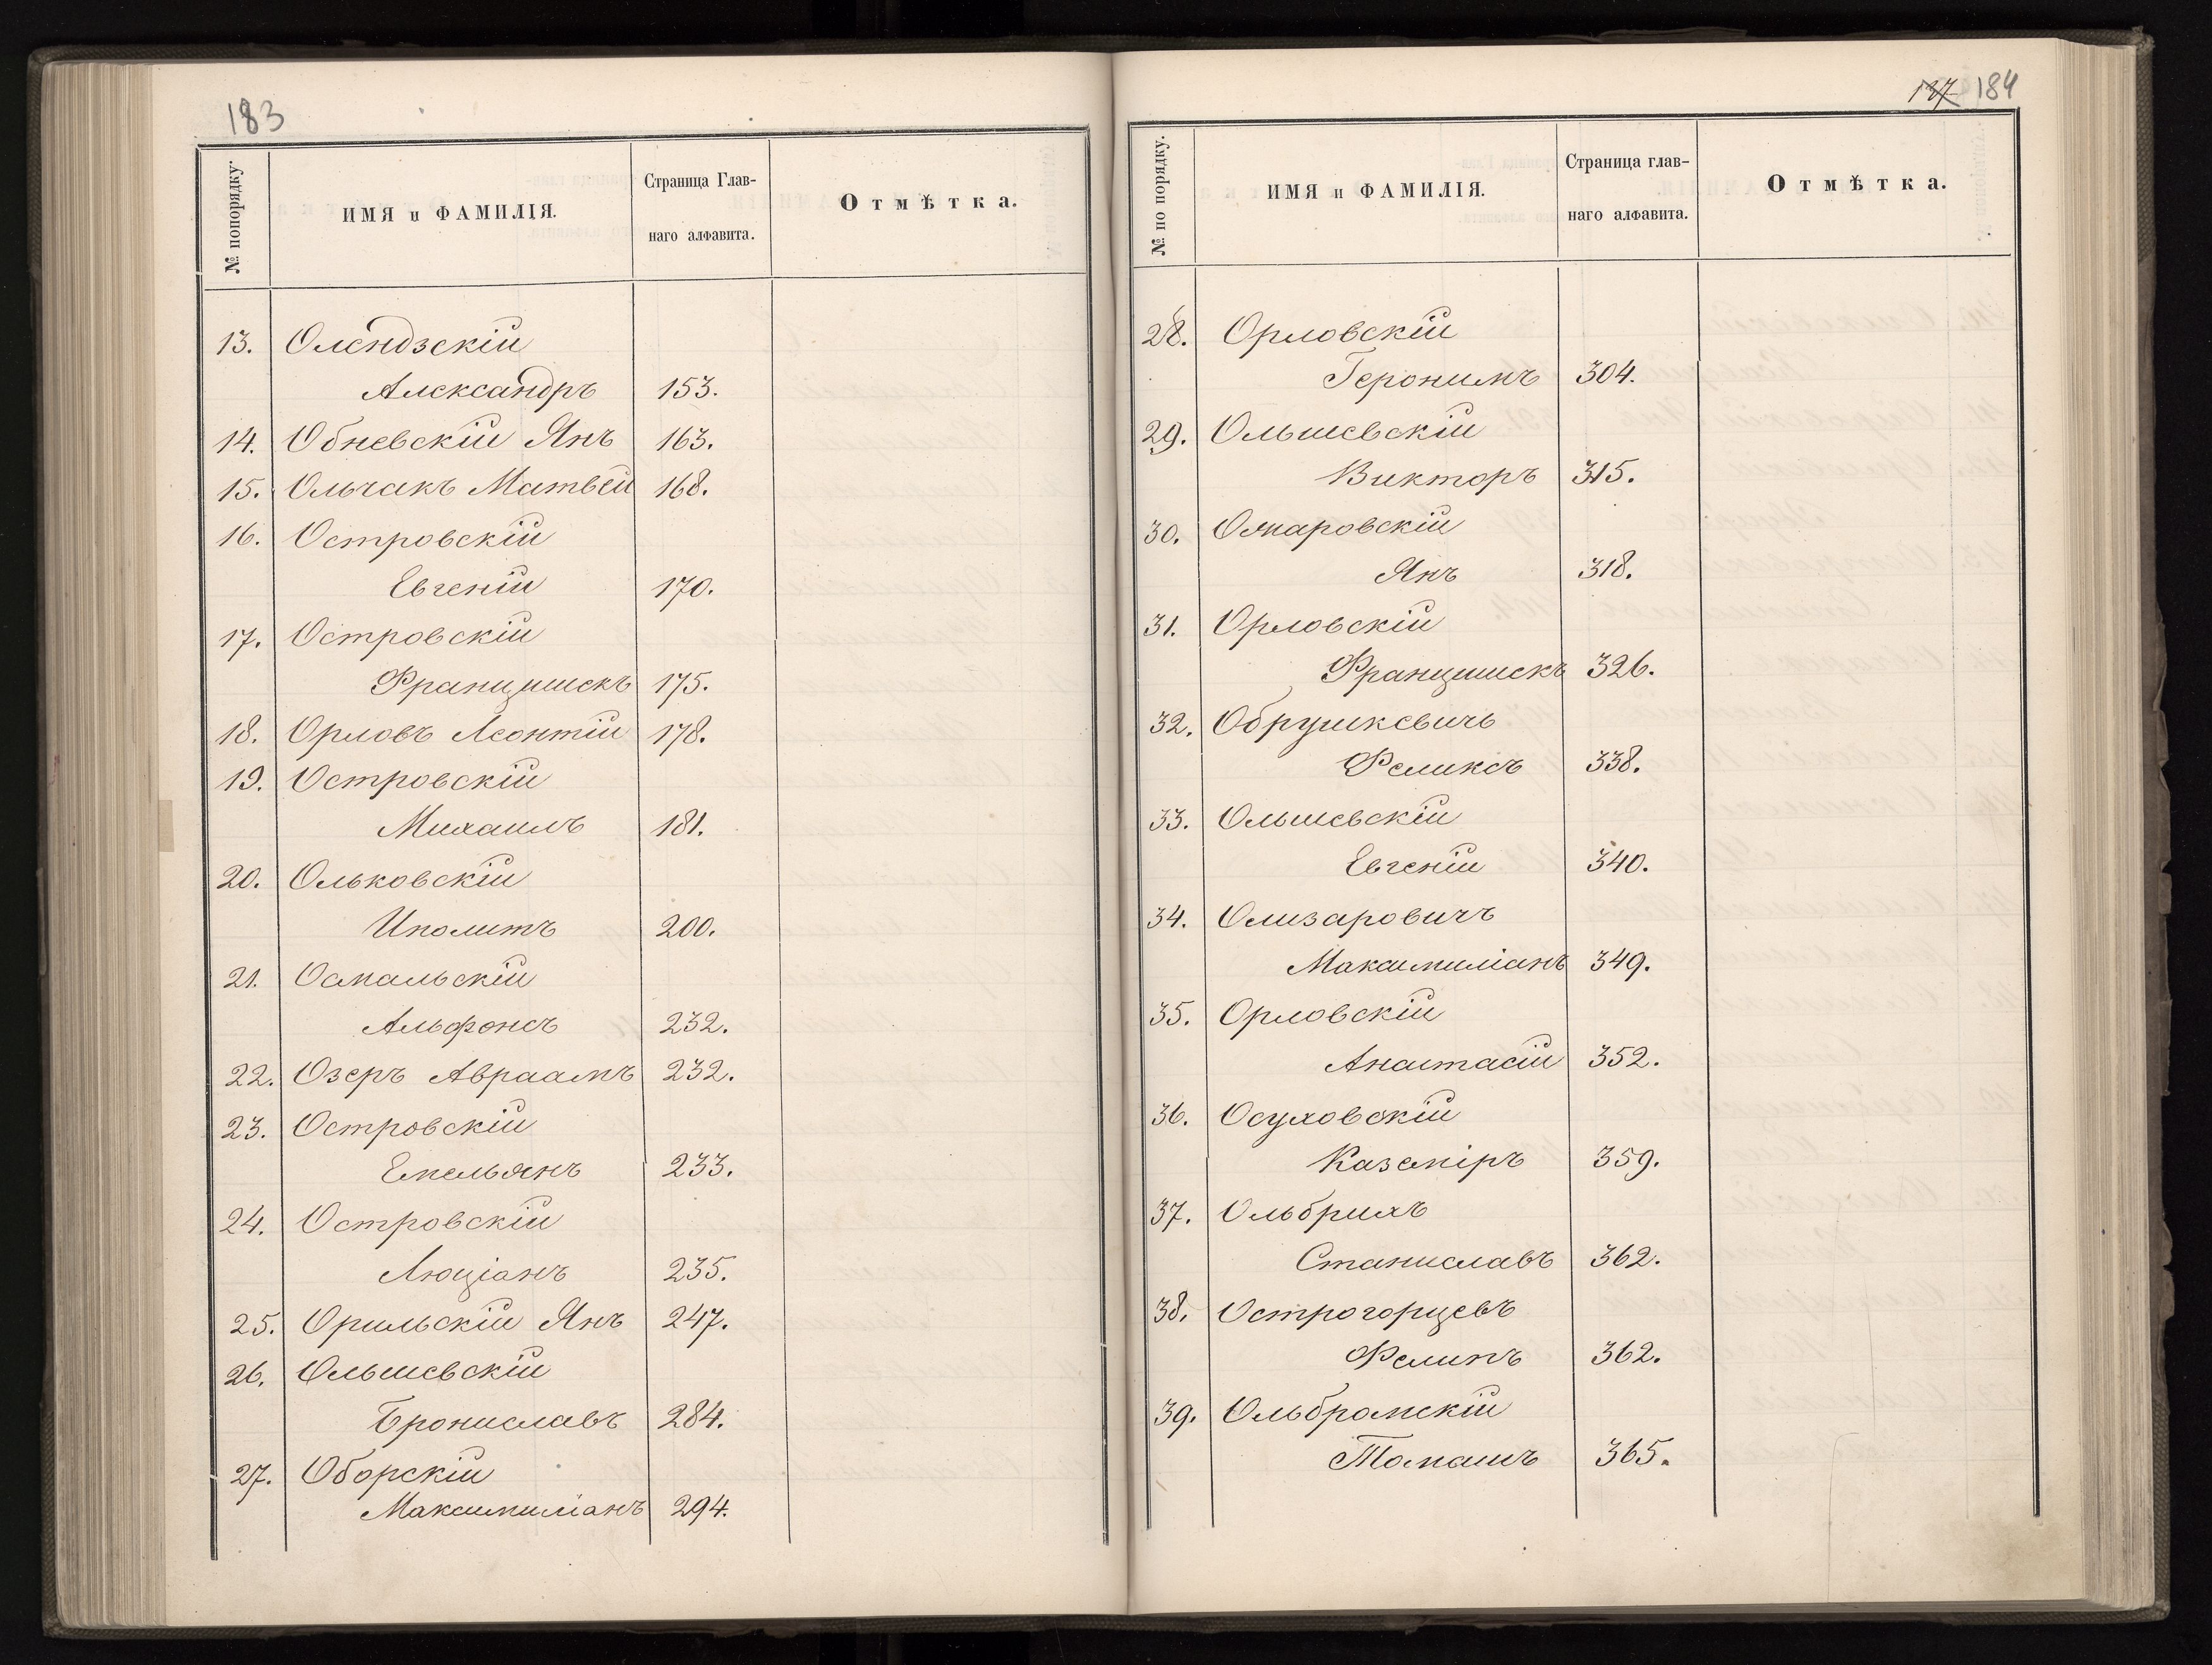 183
№ попорядку.
ИМЯ и ФАМИЛІЯ.
Страница Глав-
наго алфавита.
Отмѣтка.
13. Олендзскій
Александръ 153.
14. Обневскій Янъ 163.
15. Ольчакъ Матвей 168.
16. Островскій
Евгеній 170.
17. Островскій
Францишекъ 175.
18. Орловъ Леонтій 178.
19. Островскій
Михаилъ 181.
20. Ольковскій
Иполитъ 200.
21. Осмальскій
Альфонсъ 232.
22. Озеръ Авраамъ 232.
23. Островскій
Емельянъ 233.
24. Островскій
Люціанъ 235.
25. Орильскій Янъ 247.
26. Ольшевскій
Брониславъ 284.
27. Оборскій
Максимиліанъ 294.
187 184
№ по порядку.
ИМЯ и ФАМИЛІЯ.
Страница глав-
наго алфавита.
Отмѣтка.
28. Орловскій
Геронимъ 304.
29. Ольшевскій
Викторъ 315.
30. Омаровскій
Янъ 318.
31. Орловскій
Францишскъ 326.
32. Обрушкевичъ
Феликсъ 338.
33. Ольшевскій
Евгеній 340.
34. Олизаровичъ
Максимиліанъ 349.
35. Орловскій
Анастасій 352.
36. Осуховскій
Каземіръ 359.
37. Ольбрихъ
Станиславъ 362.
38. Острогорцевъ
362.
39. Ольбромскій
Томашъ 365.